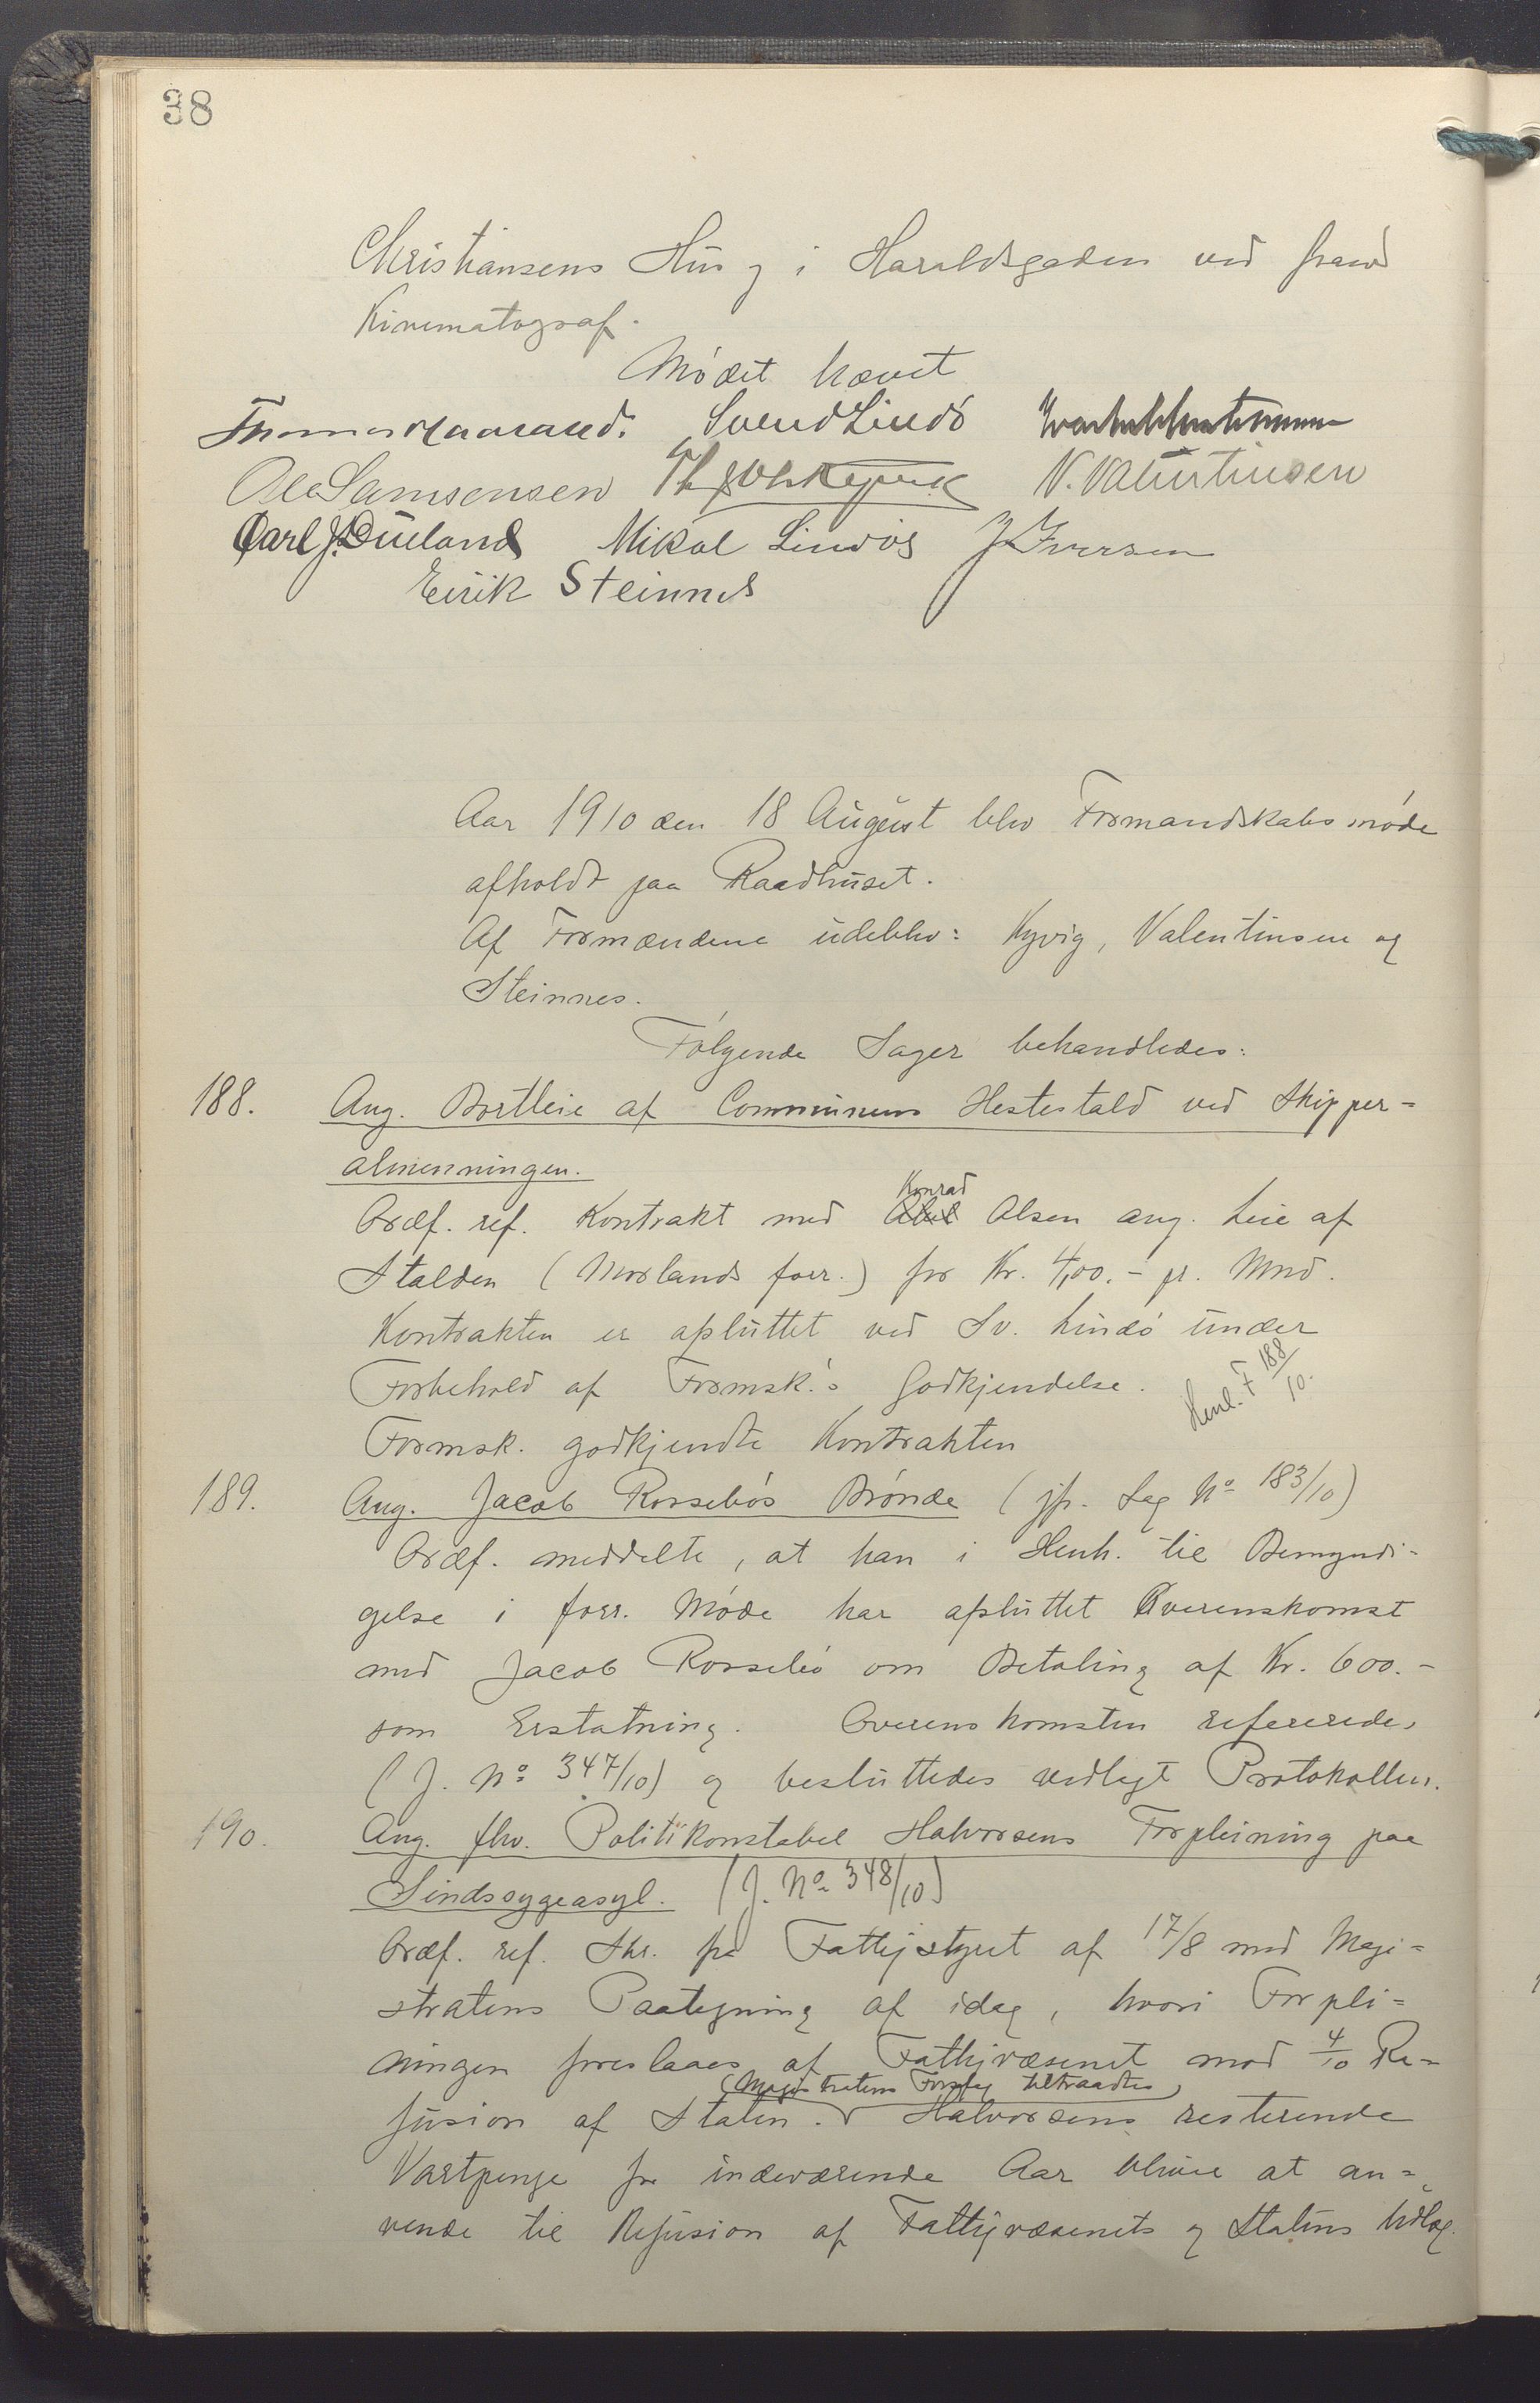 38
Christiansens Hus og i Haraldsgaden ved
Kinematograf.
Mødet hævet
Svend Lindø
Ole Samsonsen N. Valentinsen
Carl J. Dueland Mikal Lindøs J. Iversen
Eirik Steinnes
Aar 1910 den 18 August blev Formandskabsmøde
afholdt paa Raadhuset.
Af Formændene udeblev: Kyvig, Valentinsen og
Steinnes.
Følgende Sager behandledes:
188. Ang. Bortleie af Communens Hestestald ved Skipper-
almenningen.
Konrad
Ordf. ref. Kontrakt med Abel Olsen ang. Leie af
Stalden (Morlands forr.) for Kr. 4,00.- pr. Mnd.
Kontrakten er afsluttet ved Sv. Lindø under
Forbehold af Formsk.s Godkjendelse.
Henl. F 188/10.
Formsk. godkjendte Kontrakten
189. Ang. Jacob Rossebøs Brønde (jfr. Sag No 183/10)
Ordf. meddelte, at han i Henh. til Bemyndi-
gelse i forr. Møde har afsluttet Overenskomst
med Jacob Rossebø om Betaling af Kr. 600.-
som Erstatning. Overenskomsten refereredes
(J. No 347/10) og besluttedes vedlagt Protokollen.
190. Ang. fhv. Politikonstabel Halvorsens Forpleining paa
Sindssygeasyl. (J. No 348/10)
Ordf. ref. Skr. fra Fattigstyret af 17/8 med Magi-
stratens Paategning af idag, hvori Forplei-
ningen foreslaaes af Fattigvæsenet mod 4/10 Re-
(Magistratens Forslag tiltraadtes)
fusion af Staten. Halvorsens resterende
Vartpenge for indeværende Aar blive at an-
vende til Refusion af Fattigvæsenets og Statens Udlæg.